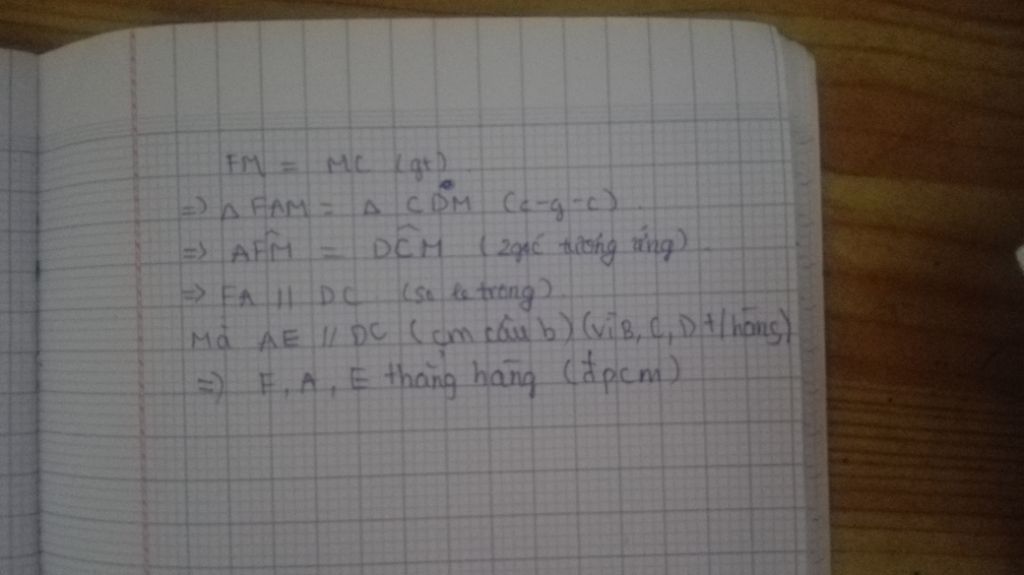 FM = MC (gt)
=> Δ FAM = Δ CDM (c-g-c).
=> AF̂M = DĈM (2góc tương ứng).
=> FA // DC (so le trong).
Mà AE // DC (cm câu b) (vì B, C, D t/hàng)
=> F, A, E thẳng hàng (đpcm)